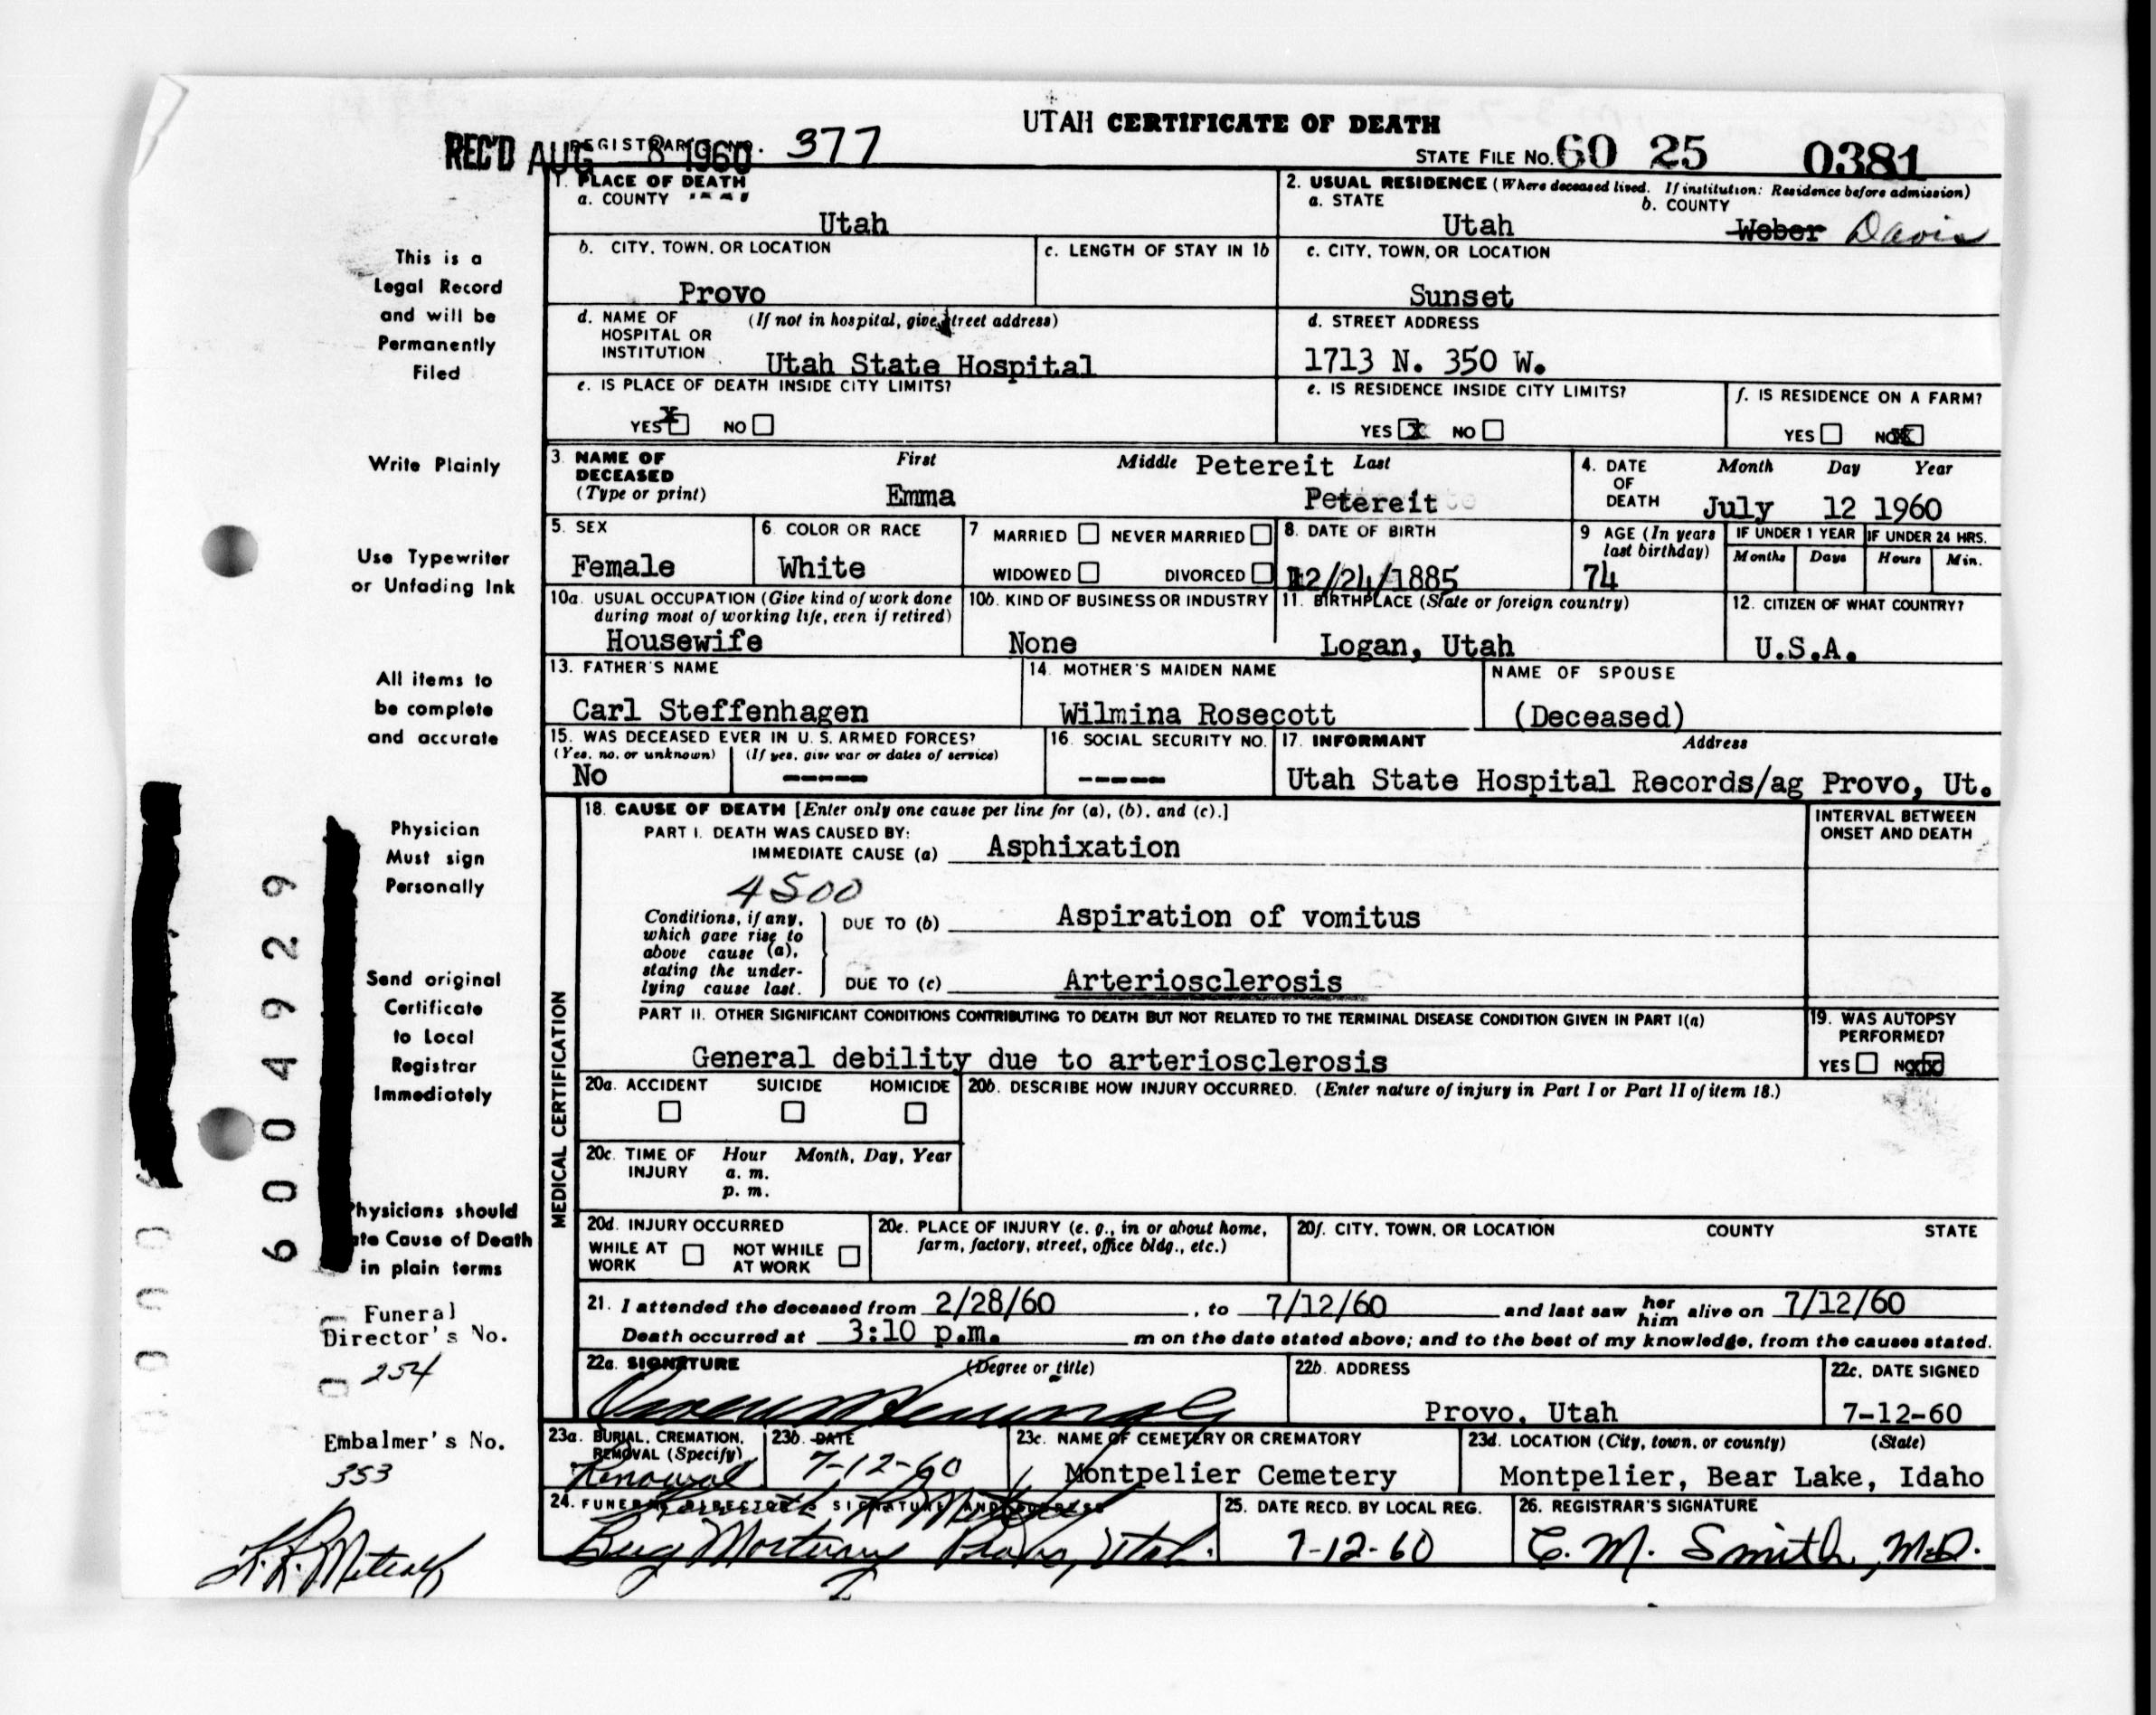 UTAH CERTIFICATE OF DEATH
REC'D AUG 8 1960 REGISTRAR'S NO. 377
STATE FILE NO. 60 25 0381
1. PLACE OF DEATH
a. COUNTY
Utah
2. USUAL RESIDENCE (Where deceased lived. If institution: Residence before admission)
a. STATE
Utah
b. COUNTY
Weber Davis
b. CITY, TOWN, OR LOCATION
Provo
c. LENGTH OF STAY IN 1b
c. CITY, TOWN, OR LOCATION
Sunset
d. NAME OF HOSPITAL OR INSTITUTION (If not in hospital, give street address)
Utah State Hospital
d. STREET ADDRESS
1713 N. 350 W.
e. IS PLACE OF DEATH INSIDE CITY LIMITS?
YES X NO
e. IS RESIDENCE INSIDE CITY LIMITS?
YES X NO
f. IS RESIDENCE ON A FARM?
YES NO X
3. NAME OF DECEASED (Type or print)
First Middle Petereit Last
Emma Petereit
4. DATE OF DEATH Month Day Year
July 12 1960
5. SEX
Female
6. COLOR OR RACE
White
7 MARRIED NEVER MARRIED
WIDOWED DIVORCED
8. DATE OF BIRTH
12/24/1885
9 AGE (In years last birthday)
74
IF UNDER 1 YEAR
Months Days
IF UNDER 24 HRS.
Hours Min.
10a. USUAL OCCUPATION (Give kind of work done during most of working life, even if retired)
Housewife
10b. KIND OF BUSINESS OR INDUSTRY
None
11. BIRTHPLACE (State or foreign country)
Logan, Utah
12. CITIZEN OF WHAT COUNTRY?
U.S.A.
13. FATHER'S NAME
Carl Steffenhagen
14. MOTHER'S MAIDEN NAME
Wilmina Rosecott
NAME OF SPOUSE
(Deceased)
15. WAS DECEASED EVER IN U. S. ARMED FORCES?
(Yes, no, or unknown) (If yes, give war or dates of service)
No -----
16. SOCIAL SECURITY NO.
-----
17. INFORMANT Address
Utah State Hospital Records/ag Provo, Ut.
MEDICAL CERTIFICATION
18. CAUSE OF DEATH [Enter only one cause per line for (a), (b), and (c).]
PART I. DEATH WAS CAUSED BY:
IMMEDIATE CAUSE (a) Asphixation
4500
Conditions, if any, which gave rise to above cause (a), stating the underlying cause last.
DUE TO (b) Aspiration of vomitus
DUE TO (c) Arteriosclerosis
INTERVAL BETWEEN ONSET AND DEATH
PART II. OTHER SIGNIFICANT CONDITIONS CONTRIBUTING TO DEATH BUT NOT RELATED TO THE TERMINAL DISEASE CONDITION GIVEN IN PART I(a)
General debility due to arteriosclerosis
19. WAS AUTOPSY PERFORMED?
YES NO X
20a. ACCIDENT SUICIDE HOMICIDE
20b. DESCRIBE HOW INJURY OCCURRED. (Enter nature of injury in Part I or Part II of item 18.)
20c. TIME OF INJURY Hour Month, Day, Year
a. m.
p. m.
20d. INJURY OCCURRED
WHILE AT WORK NOT WHILE AT WORK
20e. PLACE OF INJURY (e. g., in or about home, farm, factory, street, office bldg., etc.)
20f. CITY, TOWN, OR LOCATION COUNTY STATE
21. I attended the deceased from 2/28/60, to 7/12/60 and last saw her him alive on 7/12/60
Death occurred at 3:10 p.m. m on the date stated above; and to the best of my knowledge, from the causes stated.
22a. SIGNATURE (Degree or title)
22b. ADDRESS
Provo, Utah
22c. DATE SIGNED
7-12-60
23a. BURIAL, CREMATION, REMOVAL (Specify)
Removal
23b. DATE
7-12-60
23c. NAME OF CEMETERY OR CREMATORY
Montpelier Cemetery
23d. LOCATION (City, town, or county) (State)
Montpelier, Bear Lake, Idaho
24. FUNERAL DIRECTOR'S SIGNATURE AND ADDRESS
Berg Mortuary Provo, Utah.
25. DATE RECD. BY LOCAL REG.
7-12-60
26. REGISTRAR'S SIGNATURE
C. M. Smith, M.D.
This is a
Legal Record
and will be
Permanently
Filed
Write Plainly
Use Typewriter
or Unfading Ink
All items to
be complete
and accurate
Physician
Must sign
Personally
Send original
Certificate
to Local
Registrar
Immediately
Physicians should
ate Cause of Death
in plain terms
Funeral
Director's No.
254
Embalmer's No.
353
6004929